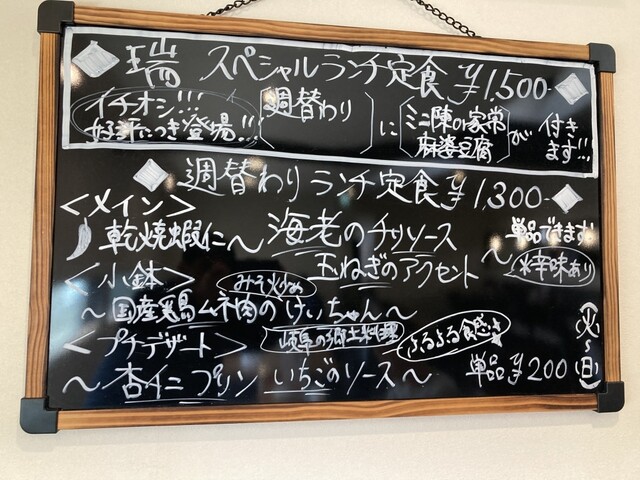 瑞 スペシャルランチ定食 ¥1,500-
イチオシ!!! 好評につき登場!!!
週替わり に ミニ陳or家常麻婆豆腐 が 付きます!!!
週替わりランチ定食 ¥1,300-
<メイン>
乾焼蝦仁〜海老のチリソース 玉ねぎのアクセント〜
単品できます
※辛味あり
<小鉢> みそ炒め
〜国産鶏ムネ肉のけいちゃん〜
<プチデザート> 岐阜の郷土料理 ぷるぷる食感
〜杏仁プリン いちごのソース〜 単品¥200
(火〜日)